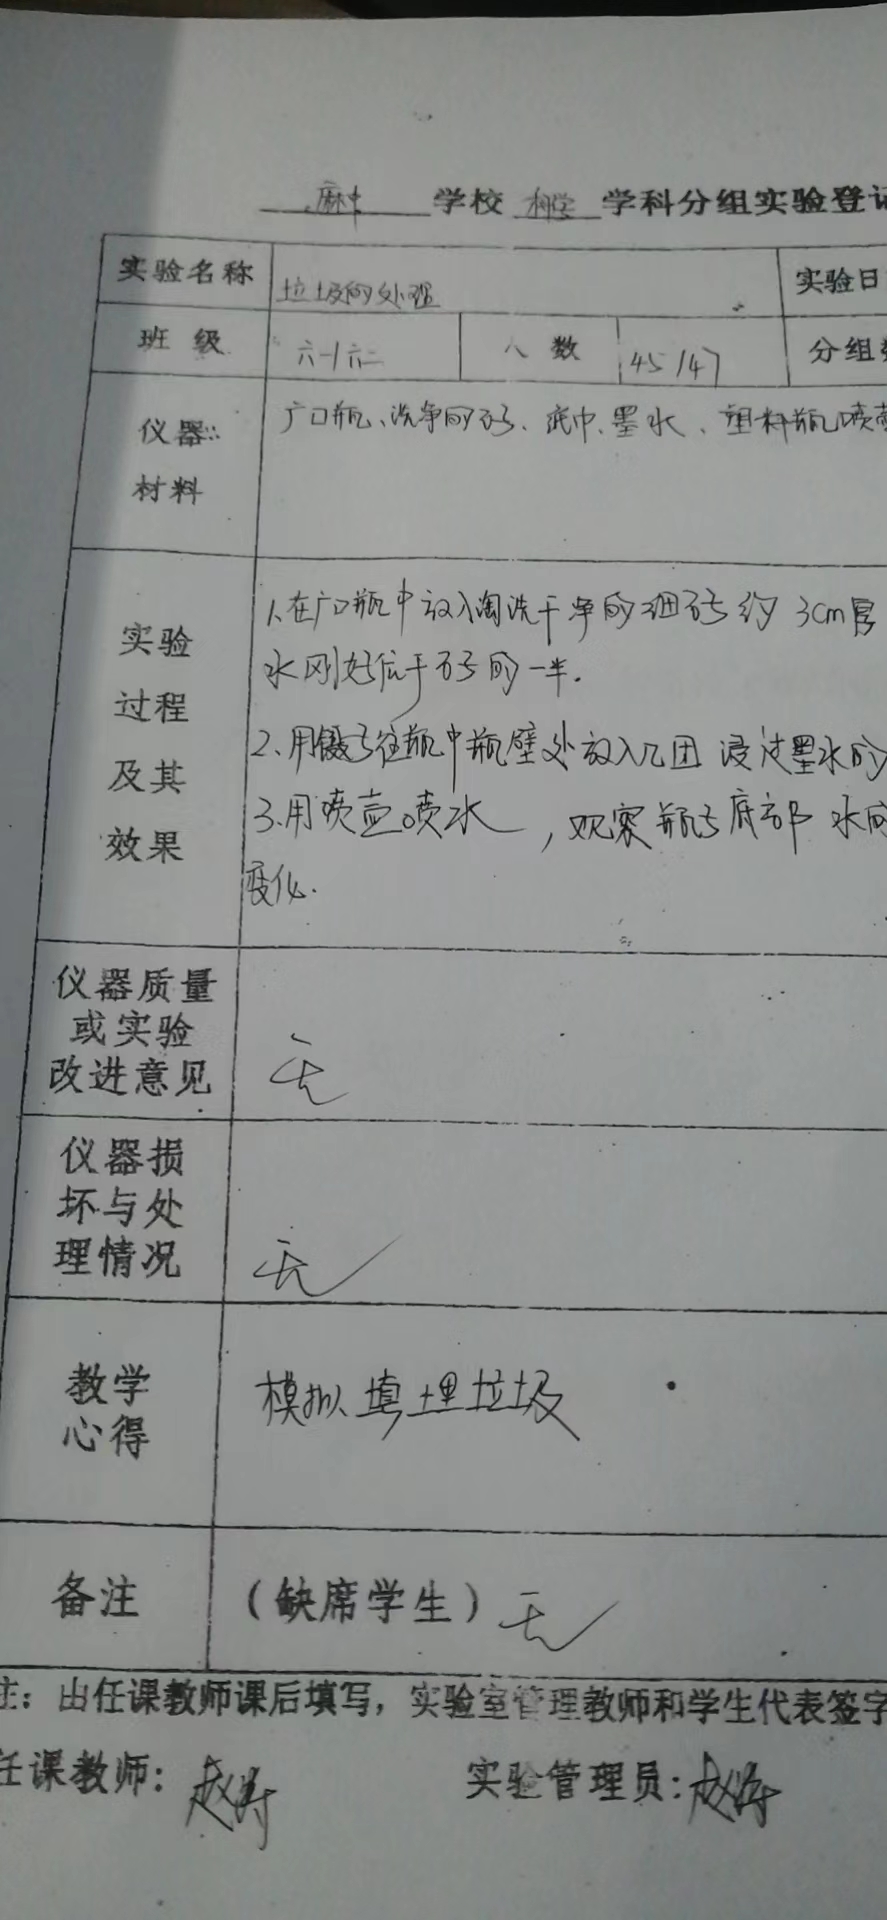 学校 科学 学科分组实验登记
实验名称 垃圾的处理 实验日
班级 六一/六二 人数 45/47 分组
仪器 广口瓶、洗净的石子、纸巾、墨水、塑料瓶喷壶
材料
实验 1.在广口瓶中放入淘洗干净的细石子约3cm
水刚好位于石子的一半.
过程 2.用镊子往瓶中瓶壁处放入几团浸过墨水的
及其 3.用喷壶喷水,观察瓶子底部水
效果 变化.
仪器质量
或实验
改进意见 无
仪器损
坏与处
理情况 无
教学 模拟填埋垃圾
心得
备注 (缺席学生) 无
注:由任课教师课后填写,实验室管理教师和学生代表签字
任课教师: 实验管理员: